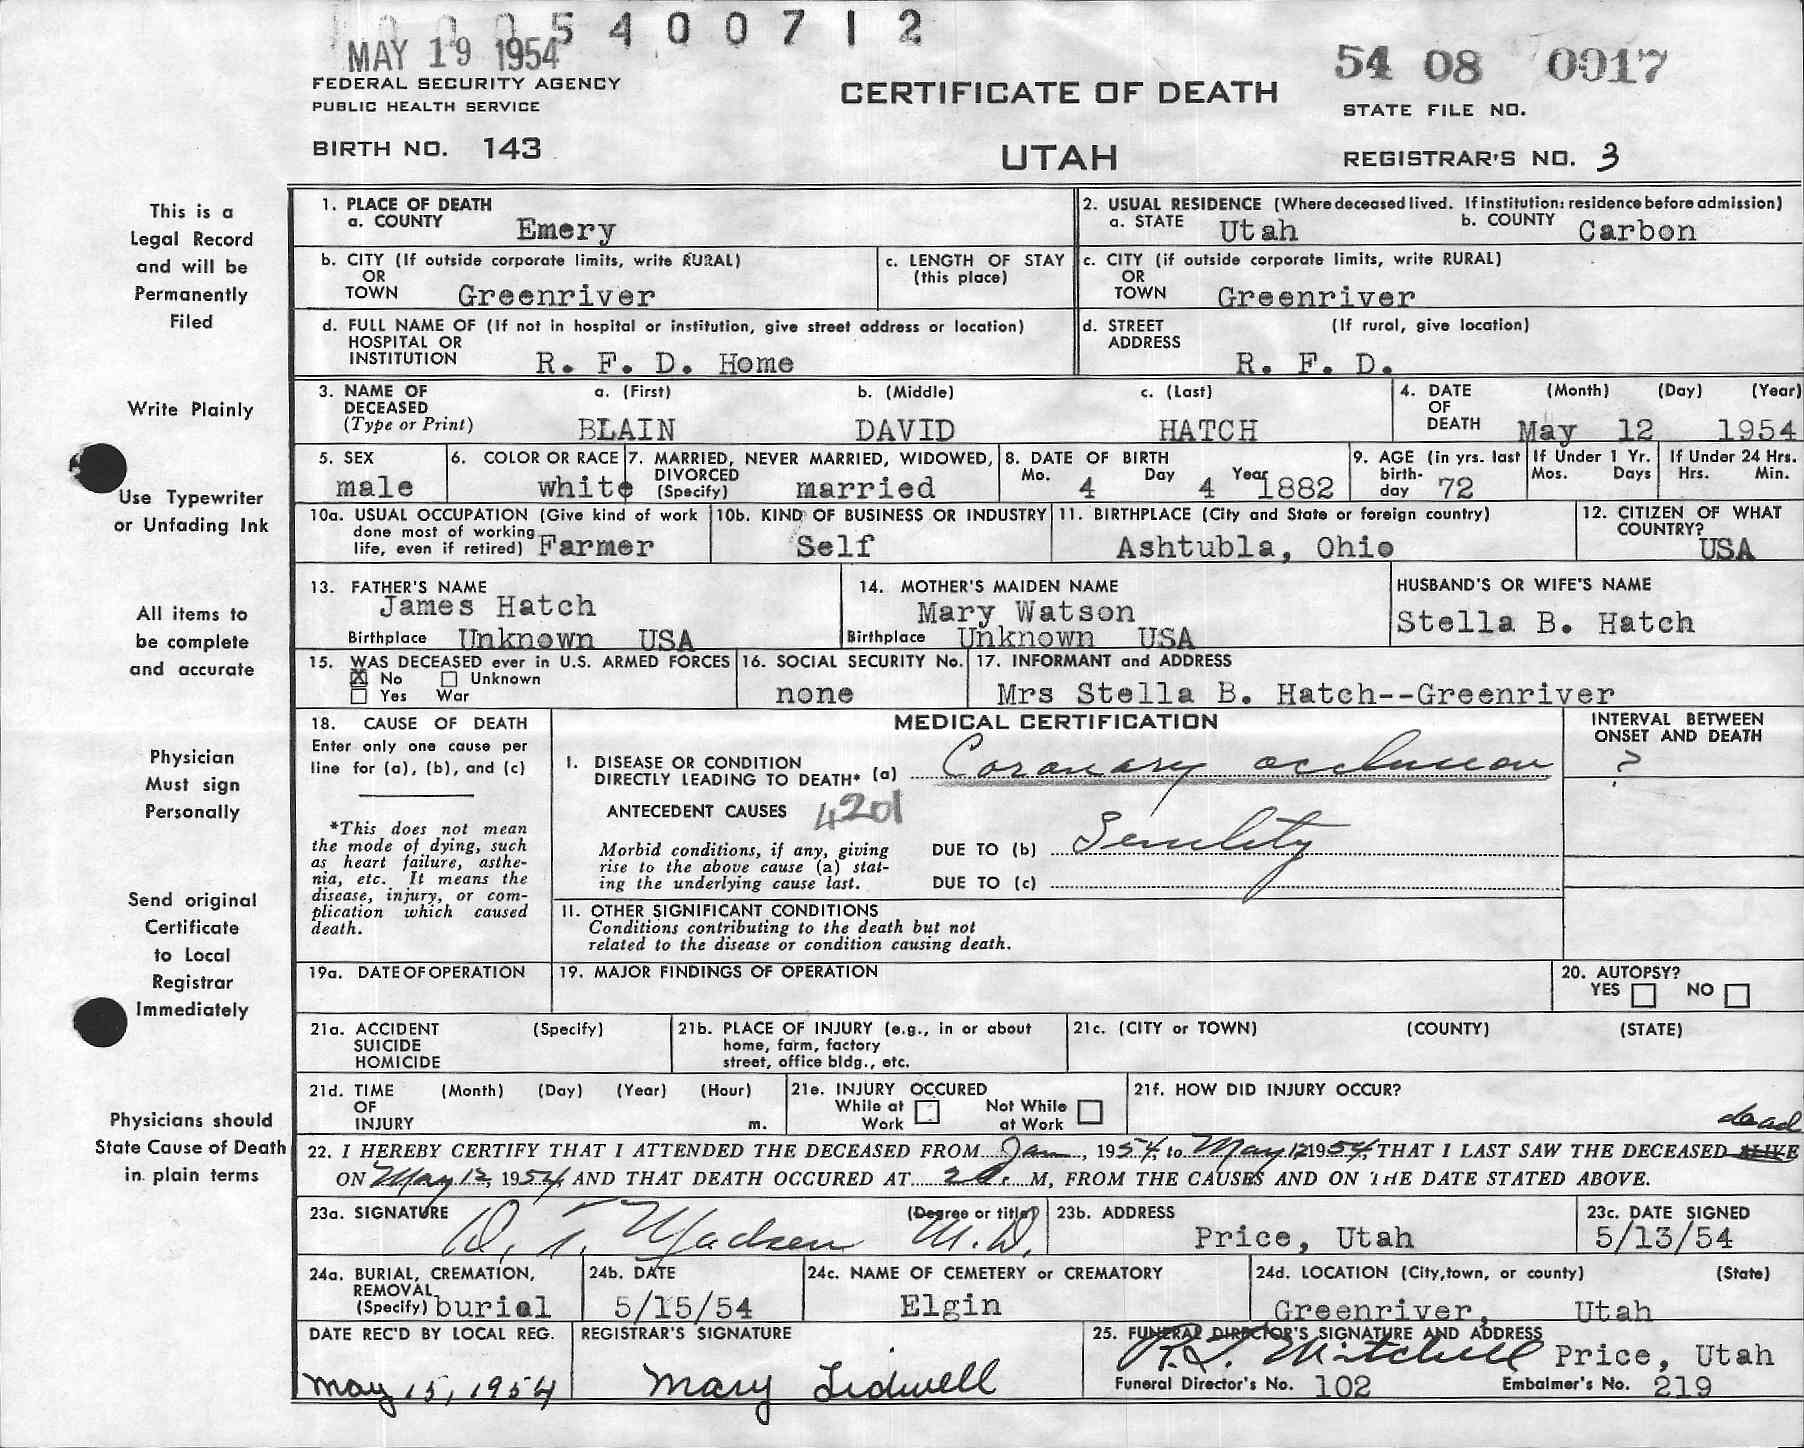 5 4 0 0 7 1 2
MAY 19 1954
54 08 0017
FEDERAL SECURITY AGENCY
PUBLIC HEALTH SERVICE
CERTIFICATE OF DEATH
STATE FILE NO.
BIRTH NO. 143
UTAH
REGISTRAR'S NO. 3
This is a
Legal Record
and will be
Permanently
Filed
Write Plainly
Use Typewriter
or Unfading Ink
All items to
be complete
and accurate
Physician
Must sign
Personally
Send original
Certificate
to Local
Registrar
Immediately
Physicians should
State Cause of Death
in plain terms
1. PLACE OF DEATH
a. COUNTY Emery
2. USUAL RESIDENCE (Where deceased lived. If institution: residence before admission)
a. STATE Utah b. COUNTY Carbon
b. CITY (If outside corporate limits, write RURAL)
OR
TOWN Greenriver
c. LENGTH OF STAY
(this place)
c. CITY (if outside corporate limits, write RURAL)
OR
TOWN Greenriver
d. FULL NAME OF (If not in hospital or institution, give street address or location)
HOSPITAL OR
INSTITUTION R. F. D. Home
d. STREET (If rural, give location)
ADDRESS R. F. D.
3. NAME OF a. (First) b. (Middle) c. (Last)
DECEASED
(Type or Print) BLAIN DAVID HATCH
4. DATE (Month) (Day) (Year)
OF
DEATH May 12 1954
5. SEX
male
6. COLOR OR RACE
white
7. MARRIED, NEVER MARRIED, WIDOWED,
DIVORCED
(Specify) married
8. DATE OF BIRTH
Mo. 4 Day 4 Year 1882
9. AGE (in yrs. last
birth-
day 72
If Under 1 Yr.
Mos. Days
If Under 24 Hrs.
Hrs. Min.
10a. USUAL OCCUPATION (Give kind of work
done most of working
life, even if retired) Farmer
10b. KIND OF BUSINESS OR INDUSTRY
Self
11. BIRTHPLACE (City and State or foreign country)
Ashtubla, Ohio
12. CITIZEN OF WHAT
COUNTRY?
USA
13. FATHER'S NAME
James Hatch
Birthplace Unknown USA
14. MOTHER'S MAIDEN NAME
Mary Watson
Birthplace Unknown USA
HUSBAND'S OR WIFE'S NAME
Stella B. Hatch
15. WAS DECEASED ever in U.S. ARMED FORCES
X No Unknown
Yes War
16. SOCIAL SECURITY No.
none
17. INFORMANT and ADDRESS
Mrs Stella B. Hatch--Greenriver
18. CAUSE OF DEATH
Enter only one cause per
line for (a), (b), and (c)
*This does not mean
the mode of dying, such
as heart failure, asthe-
nia, etc. It means the
disease, injury, or com-
plication which caused
death.
MEDICAL CERTIFICATION
I. DISEASE OR CONDITION
DIRECTLY LEADING TO DEATH* (a) Coronary occlusion
ANTECEDENT CAUSES 4201
Morbid conditions, if any, giving
rise to the above cause (a) stat-
ing the underlying cause last.
DUE TO (b) Senility
DUE TO (c)
II. OTHER SIGNIFICANT CONDITIONS
Conditions contributing to the death but not
related to the disease or condition causing death.
INTERVAL BETWEEN
ONSET AND DEATH
?
19a. DATE OF OPERATION
19. MAJOR FINDINGS OF OPERATION
20. AUTOPSY?
YES NO
21a. ACCIDENT (Specify)
SUICIDE
HOMICIDE
21b. PLACE OF INJURY (e.g., in or about
home, farm, factory
street, office bldg., etc.
21c. (CITY or TOWN) (COUNTY) (STATE)
21d. TIME (Month) (Day) (Year) (Hour)
OF
INJURY m.
21e. INJURY OCCURED
While at Work Not While at Work
21f. HOW DID INJURY OCCUR?
dead
22. I HEREBY CERTIFY THAT I ATTENDED THE DECEASED FROM Jan, 1954, to May 12 1954, THAT I LAST SAW THE DECEASED ALIVE
ON May 12, 1954, AND THAT DEATH OCCURED AT 2 a. M, FROM THE CAUSES AND ON THE DATE STATED ABOVE.
23a. SIGNATURE (Degree or title)
D. T. Madsen M.D.
23b. ADDRESS
Price, Utah
23c. DATE SIGNED
5/13/54
24a. BURIAL, CREMATION,
REMOVAL
(Specify) burial
24b. DATE
5/15/54
24c. NAME OF CEMETERY or CREMATORY
Elgin
24d. LOCATION (City, town, or county) (State)
Greenriver, Utah
DATE REC'D BY LOCAL REG.
May 15, 1954
REGISTRAR'S SIGNATURE
Mary Tidwell
25. FUNERAL DIRECTOR'S SIGNATURE AND ADDRESS
R. L. Mitchell Price, Utah
Funeral Director's No. 102 Embalmer's No. 219